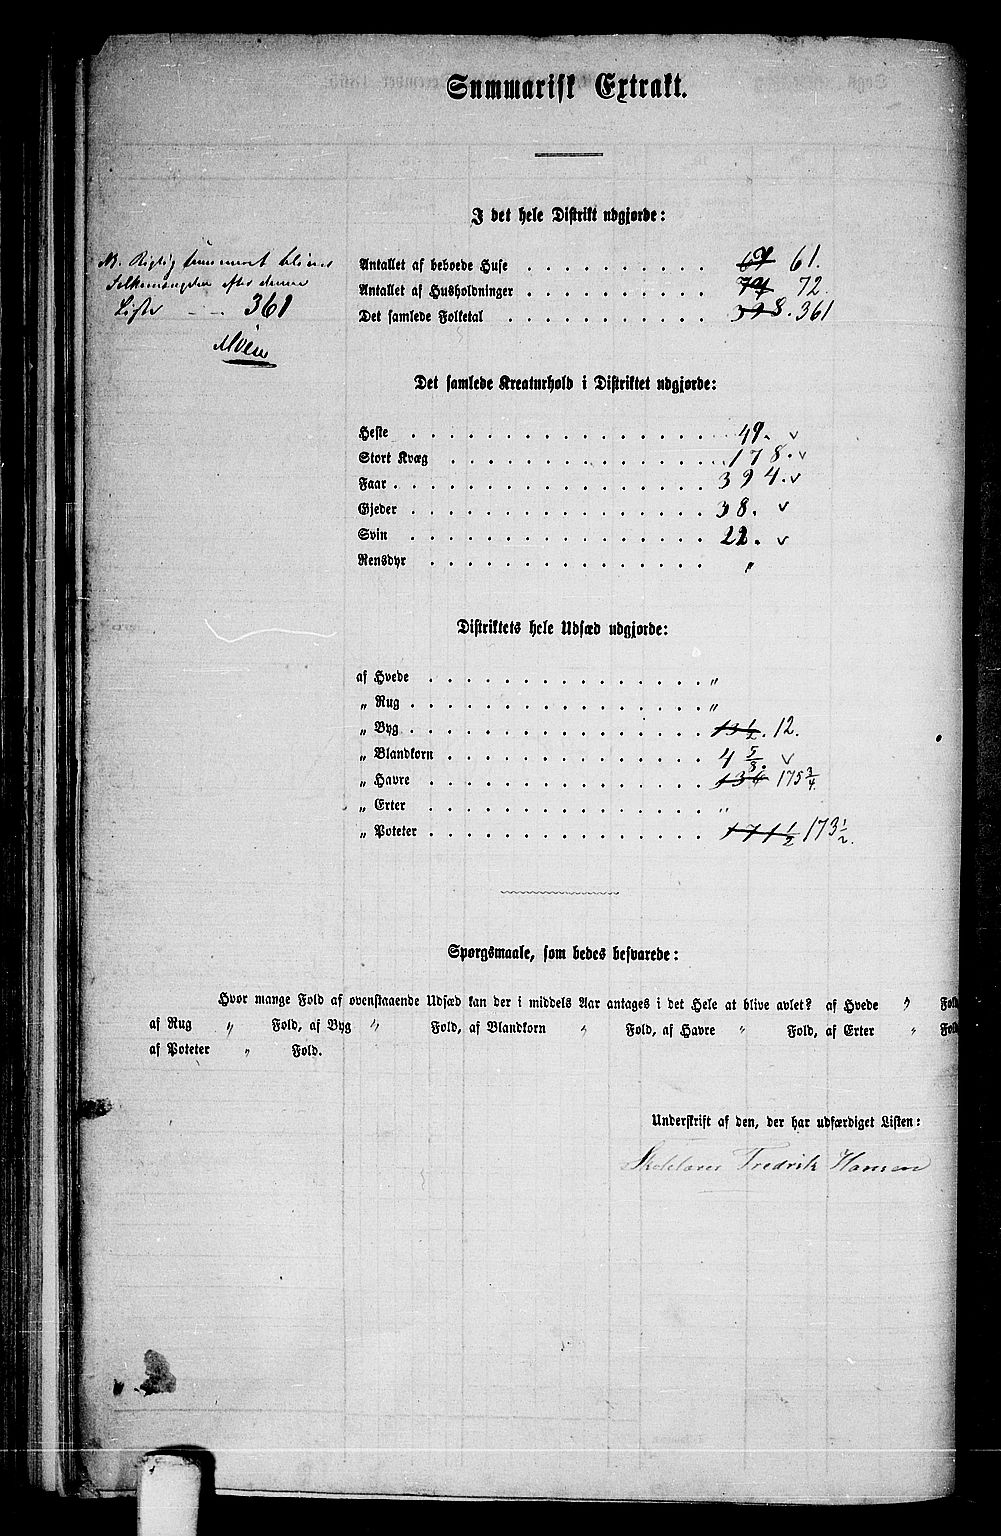 Summarisk Extrakt.
I det hele Distrikt udgjorde:
NB. Rigtig summeret bliver
Folkemængden efter denne
Liste 361
Antallet af beboede Huse 61.
Antallet af Husholdninger 72.
Det samlede Folketal 398. 361
Det samlede Kreaturhold i Distriktet udgjorde:
Heste 49. v
Stort Kvæg 178. v
Faar 394. v
Gjeder 38. v
Svin 22. v
Rensdyr "
Distriktets hele Udsæd udgjorde:
af Hvede "
„ Rug "
„ Byg 13 1/2. 12.
„ Blandkorn 4 5/8. v
„ Havre 136 175 3/4
„ Erter "
„ Poteter 171 1/2 173 1/2.
Spørgsmaale, som bedes besvarede:
Hvor mange Fold af ovenstaaende Udsæd kan der i middels Aar antages i det Hele at blive avlet? af Hvede " Fold
af Rug " Fold, af Byg " Fold, af Blandkorn " Fold, af Havre " Fold, af Erter " Fold
af Poteter " Fold.
Underskrift af den, der har udfærdiget Listen:
Skolelærer Fredrik Hansen